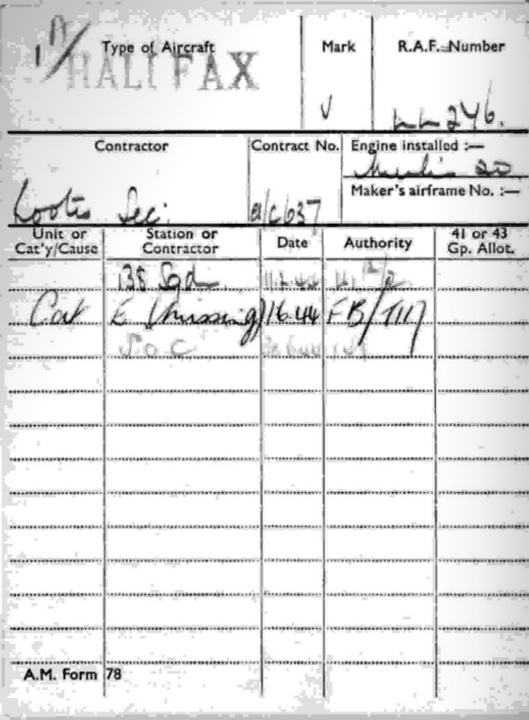 Type of Aircraft
HALIFAX
Mark
V
R.A.F. Number
LL 246.
Contractor
Rootes Sec.
Contract No.
a/c/637
Engine installed :—
Merlin 20
Maker's airframe No. :—
Unit or Cat'y/Cause
Station or Contractor
Date
Authority
41 or 43 Gp. Allot.
138 Sqd
Cat E (missing) 1.6.44 FB/T117
S.O.C
A.M. Form 78